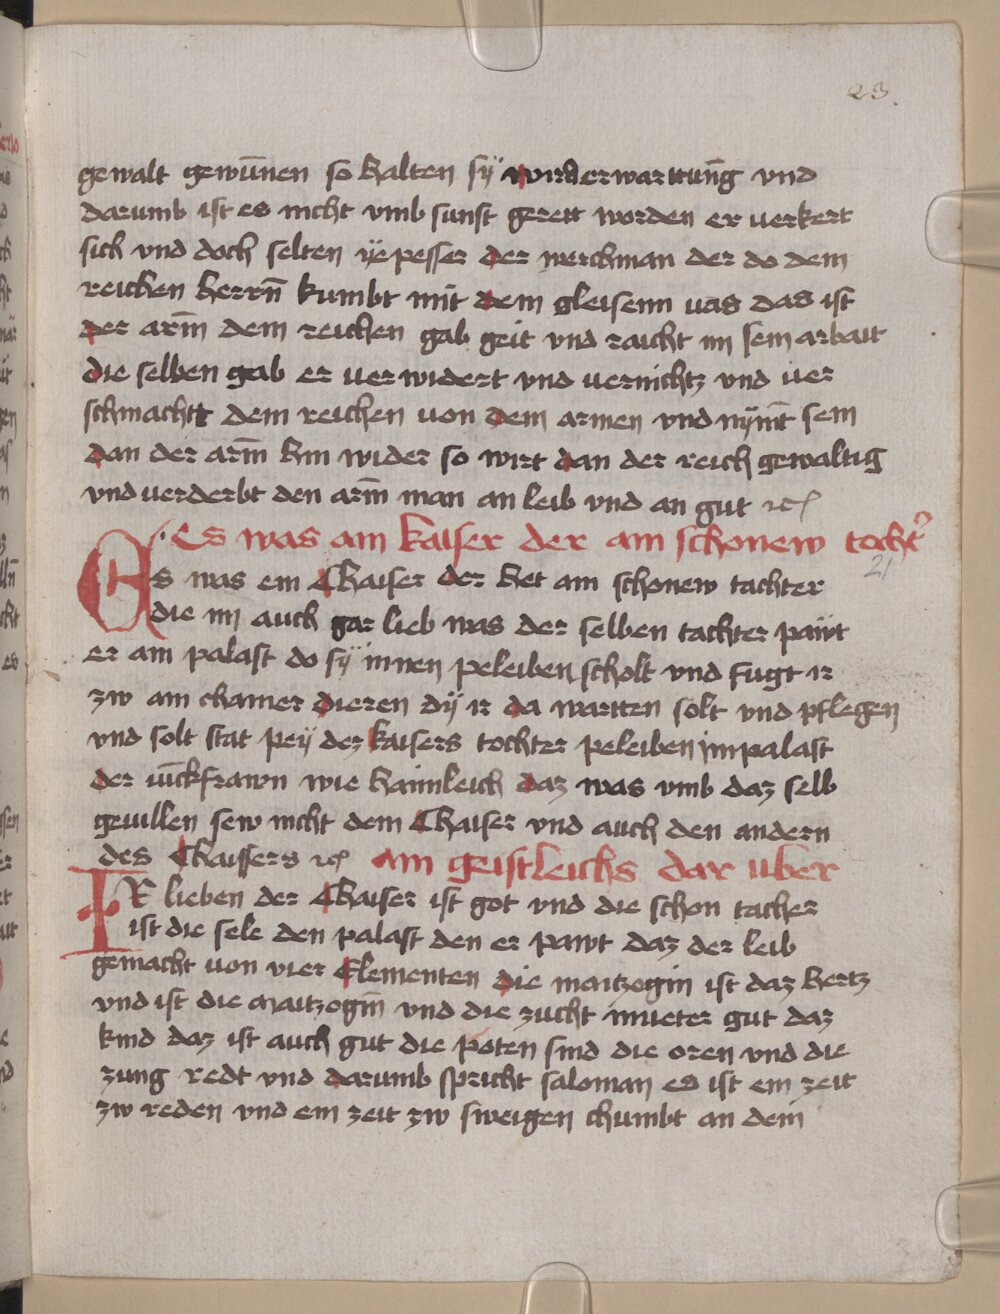 23.
gewalt gewūnen so halten sÿ widerwarttūng vnd
darumb ist es nicht vmb sunst gerett worden er verkert
sich vnd doch selten ÿe pesser der werchman der do dem
reichen herrn̄ kumbt mit dem gleisenn vas das ist
der arm̄ dem reichen gab geit vnd raicht im sein arbait
die selben gab er ver widert vnd vernichtz vnd ver
schmachtt dem reichen von dem armen vnd nÿmt̄ sein
dan der arm̄ hin wider so wirt dan der reich gewaltig
vnd verderbt den arm̄ man an leib vnd an gut ꝛcꝭ
Es was ain kaiser der ain schonew tocht᷑
21
Es was ein Chaiser der het ain schonew tachter
die im auch gar lieb was der selben tachter pawt
er ain palast do sÿ innen peleiben scholt vnd fugt ir
zw ain chamer dieren dÿ ir da wartten solt vnd pflegen
vnd solt stat peÿ dez kaisers tochter peleiben im palast
der iūckfrawn wie haimleich daz was vmb daz selb
geuillen sew nicht dem Chaiser vnd auch den andern
des Chaissers ꝛcꝭ ain geistleichs dar uber
IR lieben der Chaiser ist got vnd die schon tacher
ist die sele den palast den er pawt daz der leib
gemacht von vier Elementen die maitzogin ist daz hertz
vnd ist die maitzogin̄ vnd die zucht mueter gut daz
kind daz ist auch gut die poten sind die oren vnd die
zung redt vnd darumb spricht saloman es ist ein zeit
zw reden vnd ein zeit zw sweigen chumbt an dem